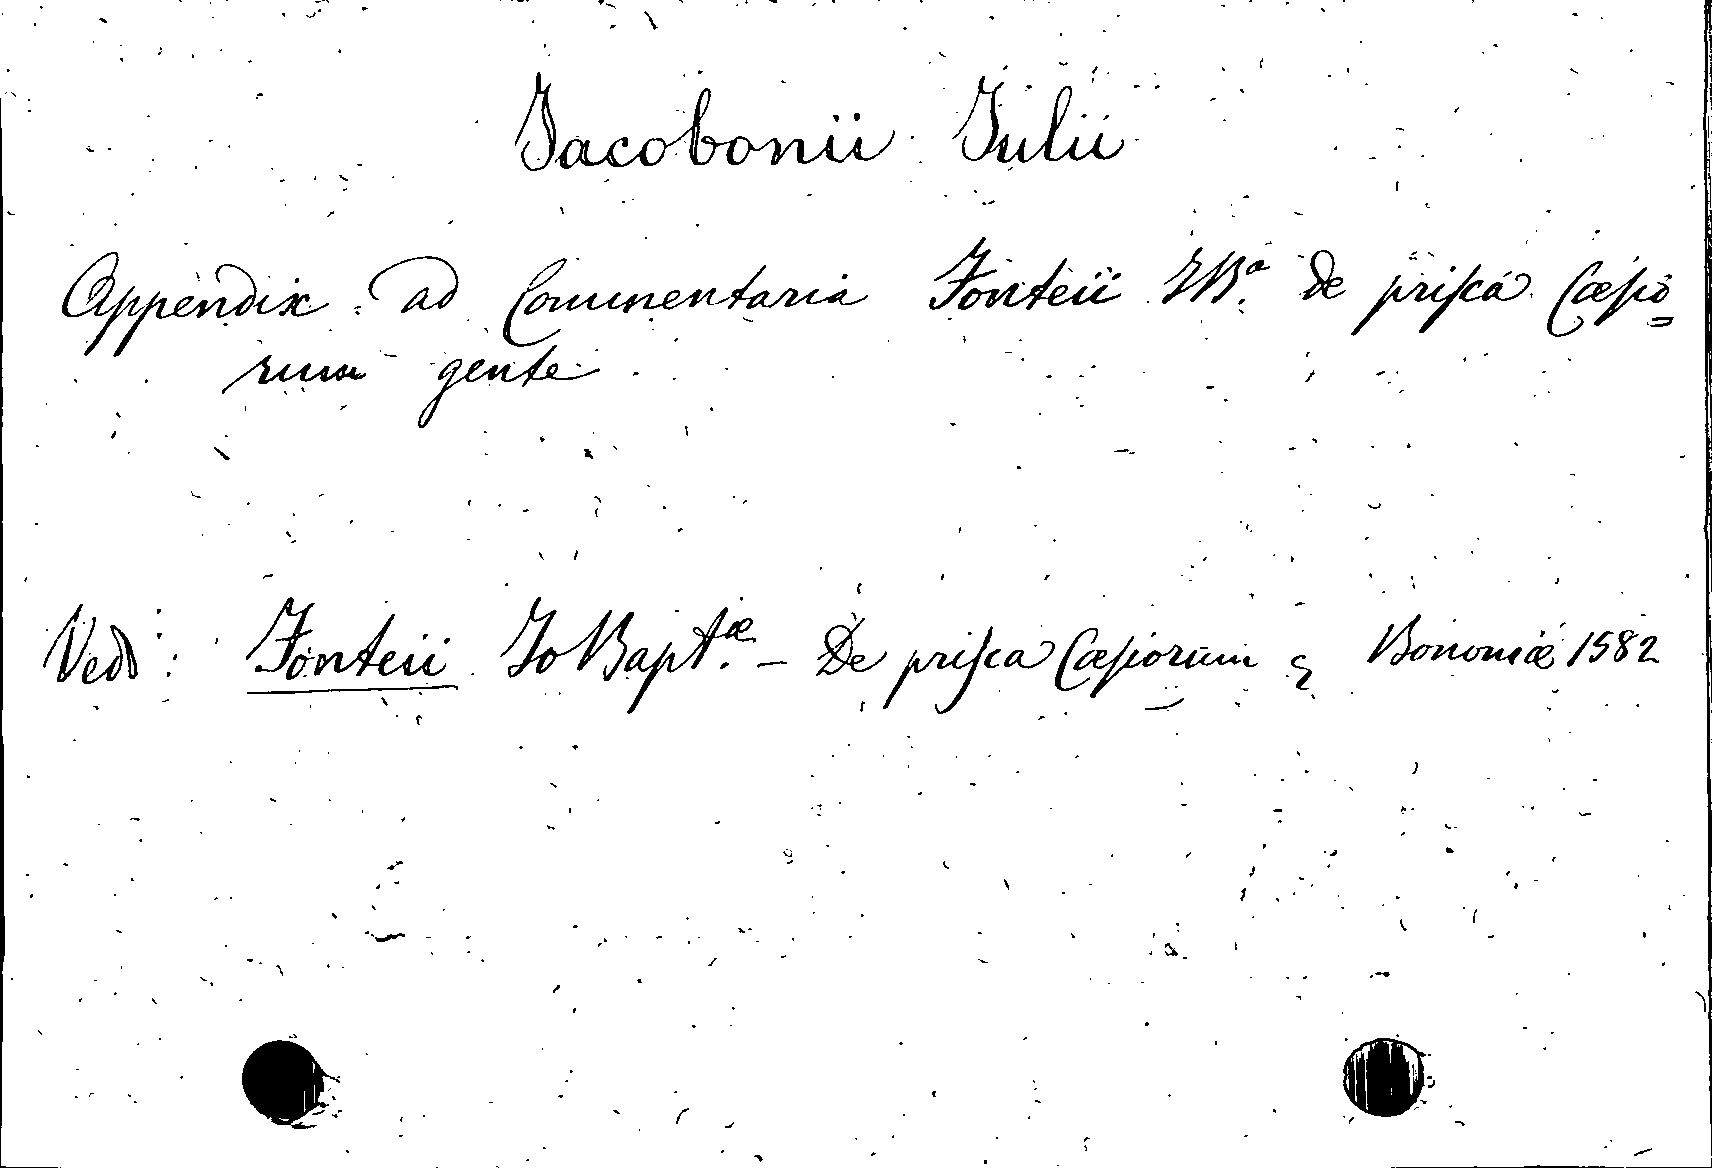 Jacobonii Julii
Appendix ad Commentaria Fonteii J Bª. De prisca Cæsio=
rum gente
Ved: Fonteii Jo Bapt.æ - De prisca Cæsiorum Bononiæ 1582